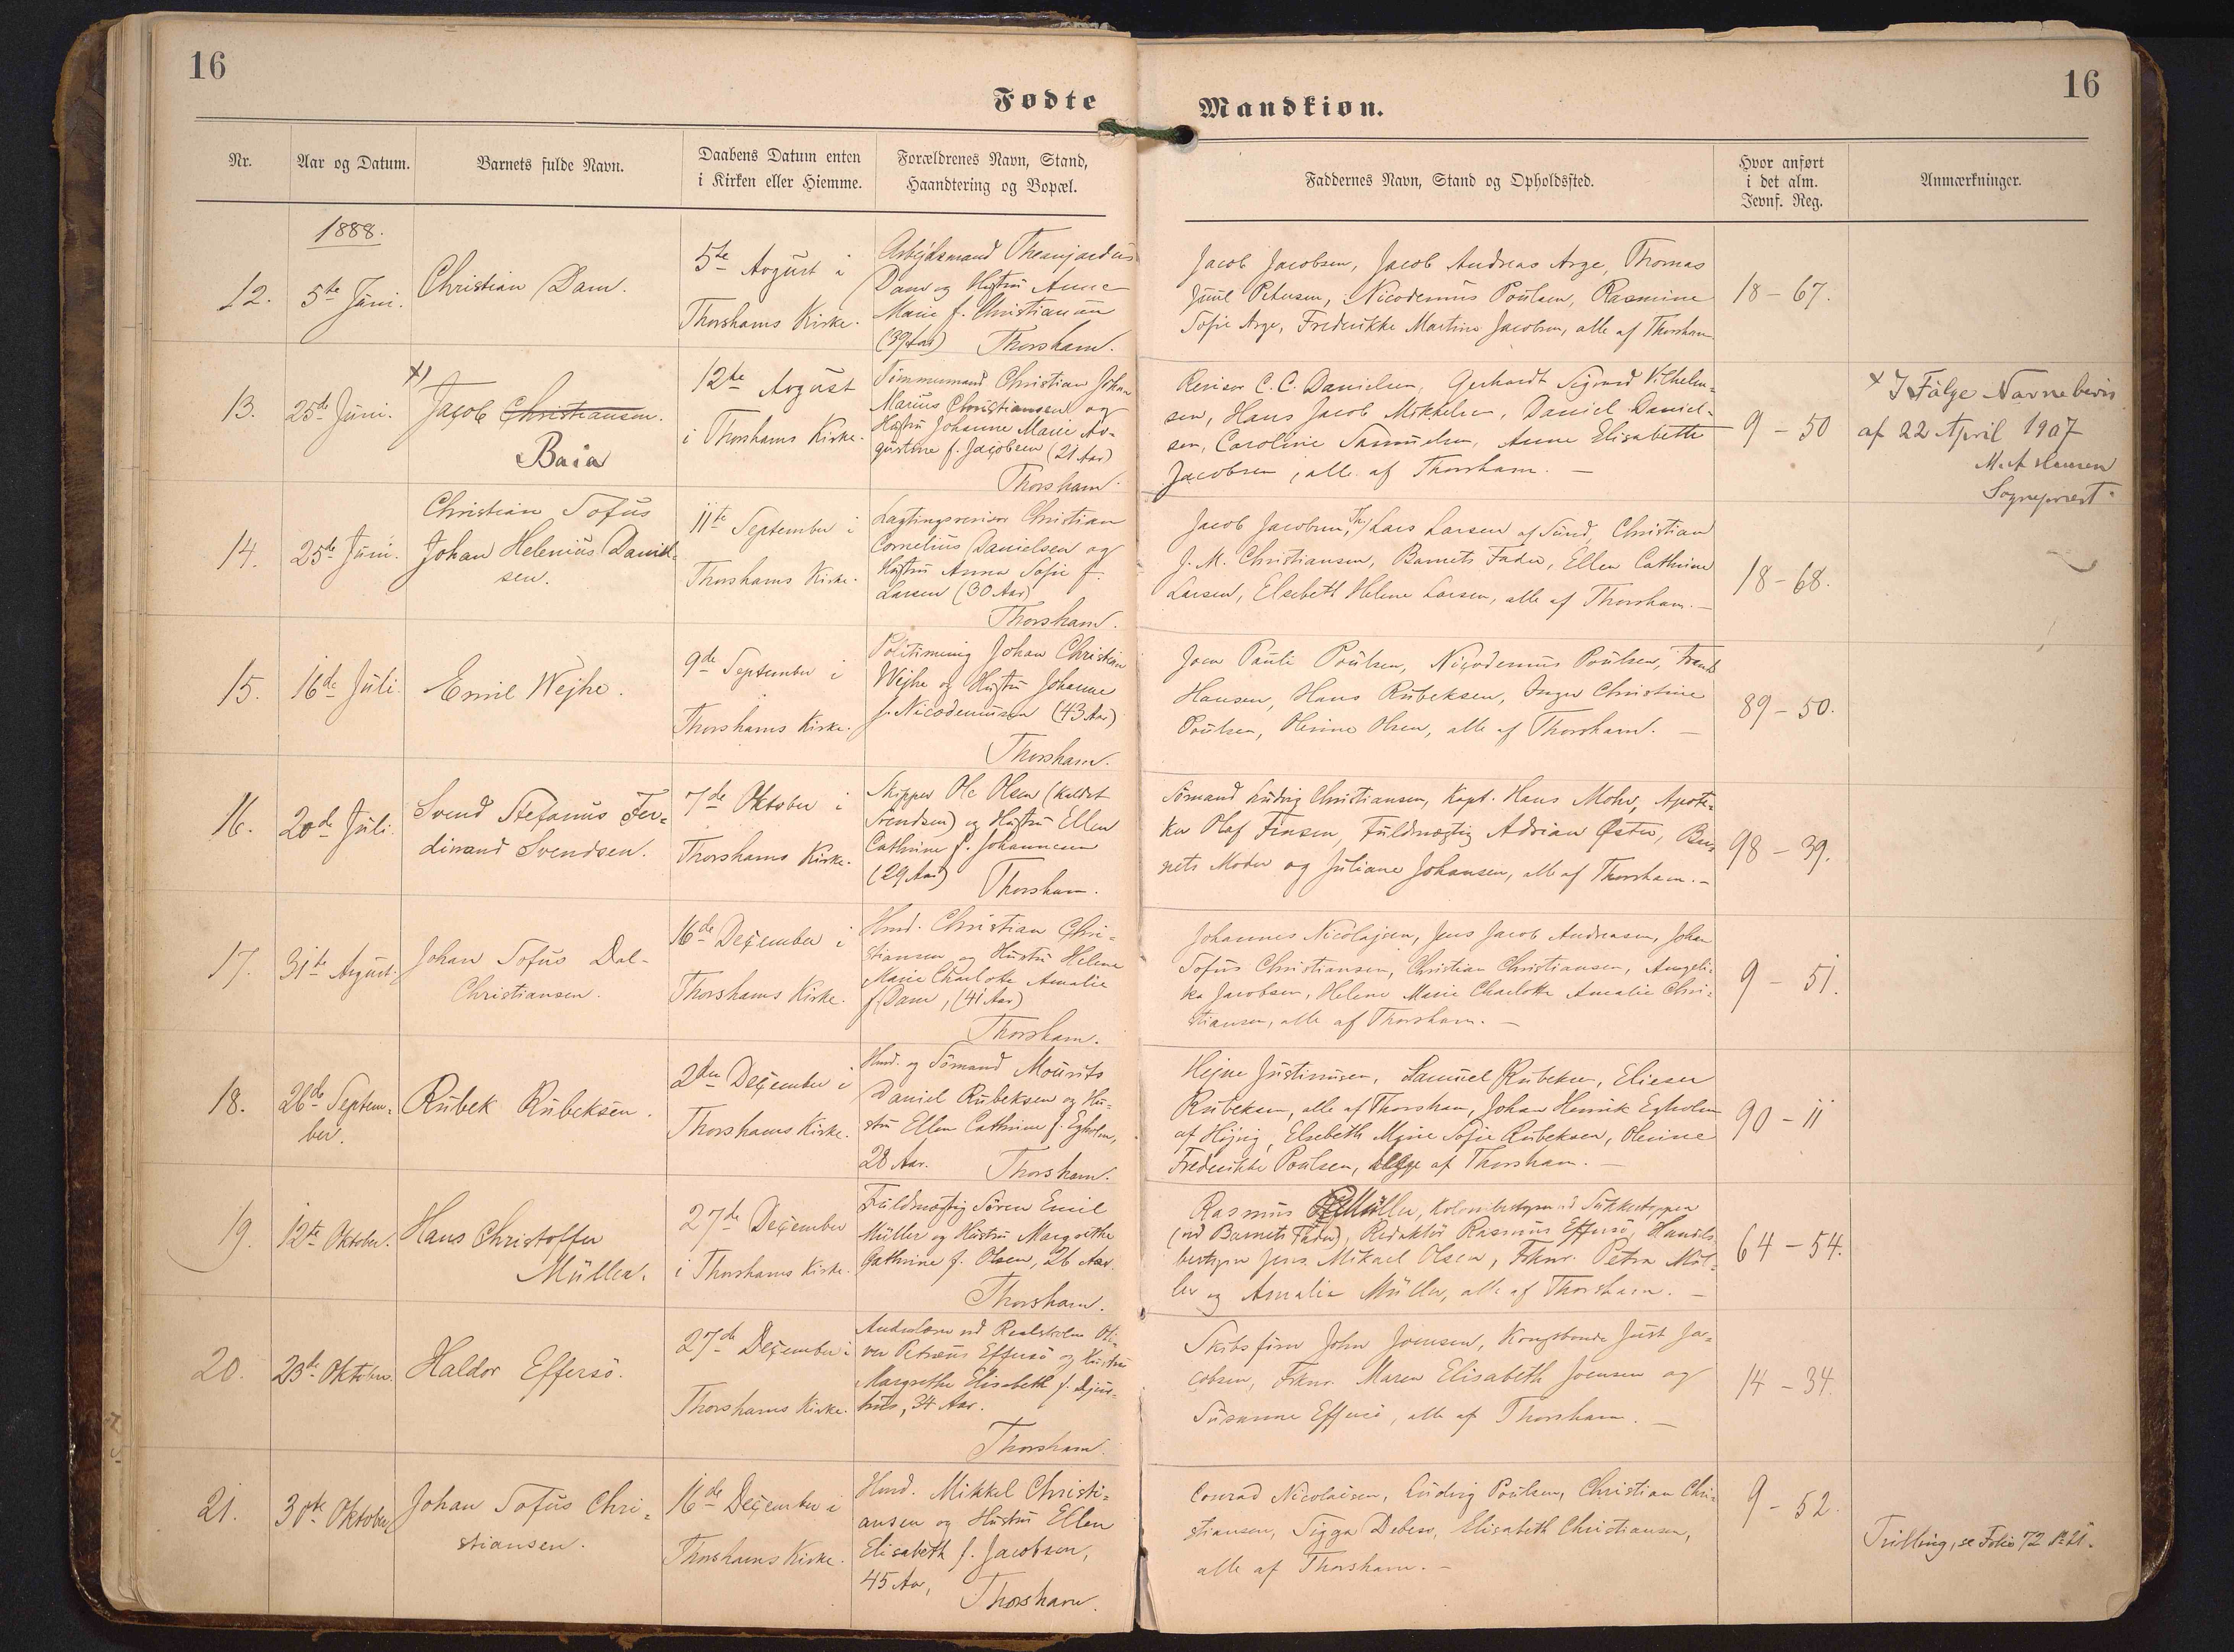 16
16
Fødte
Mandkiøn.
Nr.
Aar og Datum.
Barnets fulde Navn.
Daabens Datum enten
i Kirken eller Hiemme.
Forældrenes Navn, Stand,
Haandtering og Bopæl.
Faddernes Navn, Stand og Opholdssted.
Hvor anført
i det alm.
Jevnf. Reg.
Anmærkninger.
1888.
12.
5te Juni.
Christian Dam.
5te August i
Thorshavns Kirke.
Arbejdsmand
Dam og Hustru Anne
Marie f. Christiansen
(39 Aar) Thorshavn.
Jacob Jacobsen, Jacob Andreas Arge, Thomas
Juul Petersen, Nicodemus Poulsen, Rasmine
Sofie Arge, Frederikke Martine Jacobsen, alle af Thorshavn
18 – 67.
13.
25de Juni.
x)
Jacob Christiansen.
Baia
12te August
i Thorshavns Kirke.
Tømmermand Christian John
Marius Christiansen og
Hustru Johanne Marie Au-
gustine f. Jacobsen (21 Aar)
Thorshavn.
Revisor C. C. Danielsen, Gerhardt Sigvard Vilhelm-
sen, Hans Jacob Mikkelsen, Daniel Daniel-
sen, Caroline Samuelsen, Anne Elisabeth
Jacobsen, alle af Thorshavn. –
9 – 50
x I Følge Navnebevis
af 22 April 1907
M. A. Hansen
Sognepræst.
14.
25de Juni.
Christian Sofus
Johan Helenius Daniel-
sen.
11te September i
Thorshavns Kirke.
Lagtingsrevisor Christian
Cornelius Danielsen og
Hustru Anna Sofie f.
Larsen (30 Aar)
Thorshavn.
Jacob Jacobsen, Th./ Lars Larsen af Sund, Christian
J. M. Christiansen, Barnets Fader, Ellen Cathrine
Larsen, Elsebeth Helene Larsen, alle af Thorshavn. –
18 – 68.
15.
16de Juli.
Emil Wejhe.
9de September i
Thorshavns Kirke.
Politimining Johan Christian
Wejhe og Hustru Johanne
f. Nicodemusen (43 Aar)
Thorshavn.
Joen Pauli Poulsen, Nicodemus Poulsen, Frants
Hansen, Hans Rubeksen, Inger Christine
Poulsen, Olevine Olsen, alle af Thorshavn. –
89 – 50.
16.
20de Juli.
Svend Stefanus Fer-
dinand Svendsen.
7de Oktober i
Thorshavns Kirke.
Skipper Ole Olsen (kaldet
Svendsen) og Hustru Ellen
Cathrine f. Johannesen
(29 Aar) Thorshavn.
Sømand Ludvig Christiansen, Kapt. Hans Mohr, Apote-
ker Olaf Finsen, Fuldmægtig Adrian Øster, Bar-
nets Moder og Juliane Johansen, alle af Thorshavn. –
98 – 39.
17.
31te August.
Johan Sofus Dal-
Christiansen.
16de December i
Thorshavns Kirke.
Hmd. Christian Chri-
stiansen og Hustru Helene
Marie Charlotte Amalie
f. Dam, (41 Aar)
Thorshavn.
Johannes Nicolajsen, Jens Jacob Andreasen, Johan
Sofus Christiansen, Christian Christiansen, Angeli-
ka Jacobsen, Helene Marie Charlotte Amalie Chri-
stiansen, alle af Thorshavn. –
9 – 51.
18.
26de Septem-
ber.
Rubek Rubeksen.
2den December i
Thorshavns Kirke.
Hmd. og Sømand Mourits
Daniel Rubeksen og Hu-
stru Ellen Cathrine f. Egholm,
28 Aar. Thorshavn.
Hejne Justinusen, Samuel Rubeksen, Elieser
Rubeksen, alle af Thorshavn, Johan Henrik Egholm
af Hojvig, Elsebeth Sofie Rubeksen, Olevine
Frederikke Poulsen, af Thorshavn. –
90 – 11
19.
12te Oktober.
Hans Christoffer
Müller.
27de December
i Thorshavns Kirke.
Fuldmægtig Søren Emil
Müller og Hustru Margrethe
Cathrine f. Olsen, 26 Aar.
Thorshavn.
Rasmus Müller, Kolonibestyrer ved Sukkertoppen
(ved Barnets Fader), Redaktør Rasmus Effersø, Handels-
bestyrer Jens Mikael Olsen, Frknr. Petra Mül-
ler og Amalie Müller, alle af Thorshavn. –
64 – 54.
20.
23de Oktober.
Haldor Effersö.
27de December i
Thorshavns Kirke.
Andenlærer ved Realskolen Oli-
ver Petræus Effersö og Hustru
Margrethe Elisabeth f.
34 Aar.
Thorshavn.
Skibsfører John Joensen, Kongsbonde Just Ja-
cobsen, Frknr. Maren Elisabeth Joensen og
Susanne Effersö, alle af Thorshavn. –
14 – 34.
21.
30te Oktober
Johan Sofus Chri-
stiansen.
16de December i
Thorshavns Kirke.
Hmd. Mikkel Christi-
ansen og Hustru Ellen
Elisabeth f. Jacobsen,
45 Aar, Thorshavn.
Conrad Nicolaisen, Ludvig Poulsen, Christian Chri-
stiansen, Sigga Debess, Elisabeth Christiansen,
alle af Thorshavn. –
9 – 52.
Tvilling, se Folio 72 No 21.